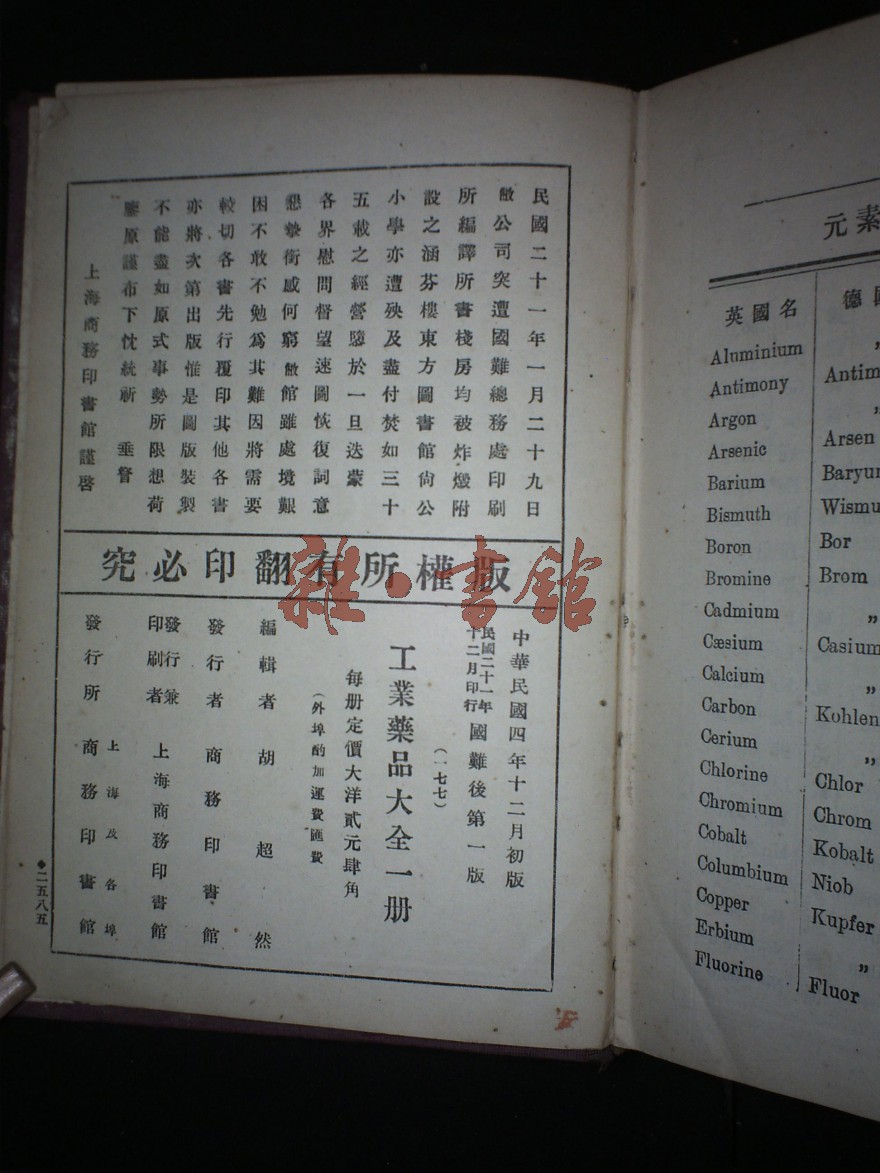 民國二十一年一月二十九日
敝公司突遭國難總務處印刷
所編譯所書棧房均被炸燬附
設之涵芬樓東方圖書館尙公
小學亦遭殃及盡付焚如三十
五載之經營隳於一旦迭蒙
各界慰問督望速圖恢復詞意
懇摯銜感何窮敝館雖處境艱
困不敢不勉爲其難因將需要
較切各書先行覆印其他各書
亦將次第出版惟是圖版裝製
不能盡如原式事勢所限想荷
鑒原謹布下忱統祈 垂詧
上海商務印書館謹啓
究必印翻有所權版
中華民國四年十二月初版
民國二十一年十二月印行 國難後第一版
(一七七)
工業藥品大全一册
每册定價大洋貳元肆角
(外埠酌加運費匯費)
編輯者 胡超然
發行者 商務印書館
發行兼印刷者 上海商務印書館
發行所 上海及各埠 商務印書館
◆二五八五
雜·書館
元素
英國名
德國
Aluminium „
Antimony Antim
Argon „
Arsenic Arsen
Barium Baryum
Bismuth Wismu
Boron Bor
Bromine Brom
Cadmium „
Cæsium Casium
Calcium „
Carbon Kohlen
Cerium „
Chlorine Chlor
Chromium Chrom
Cobalt Kobalt
Columbium Niob
Copper Kupfer
Erbium „
Fluorine Fluor